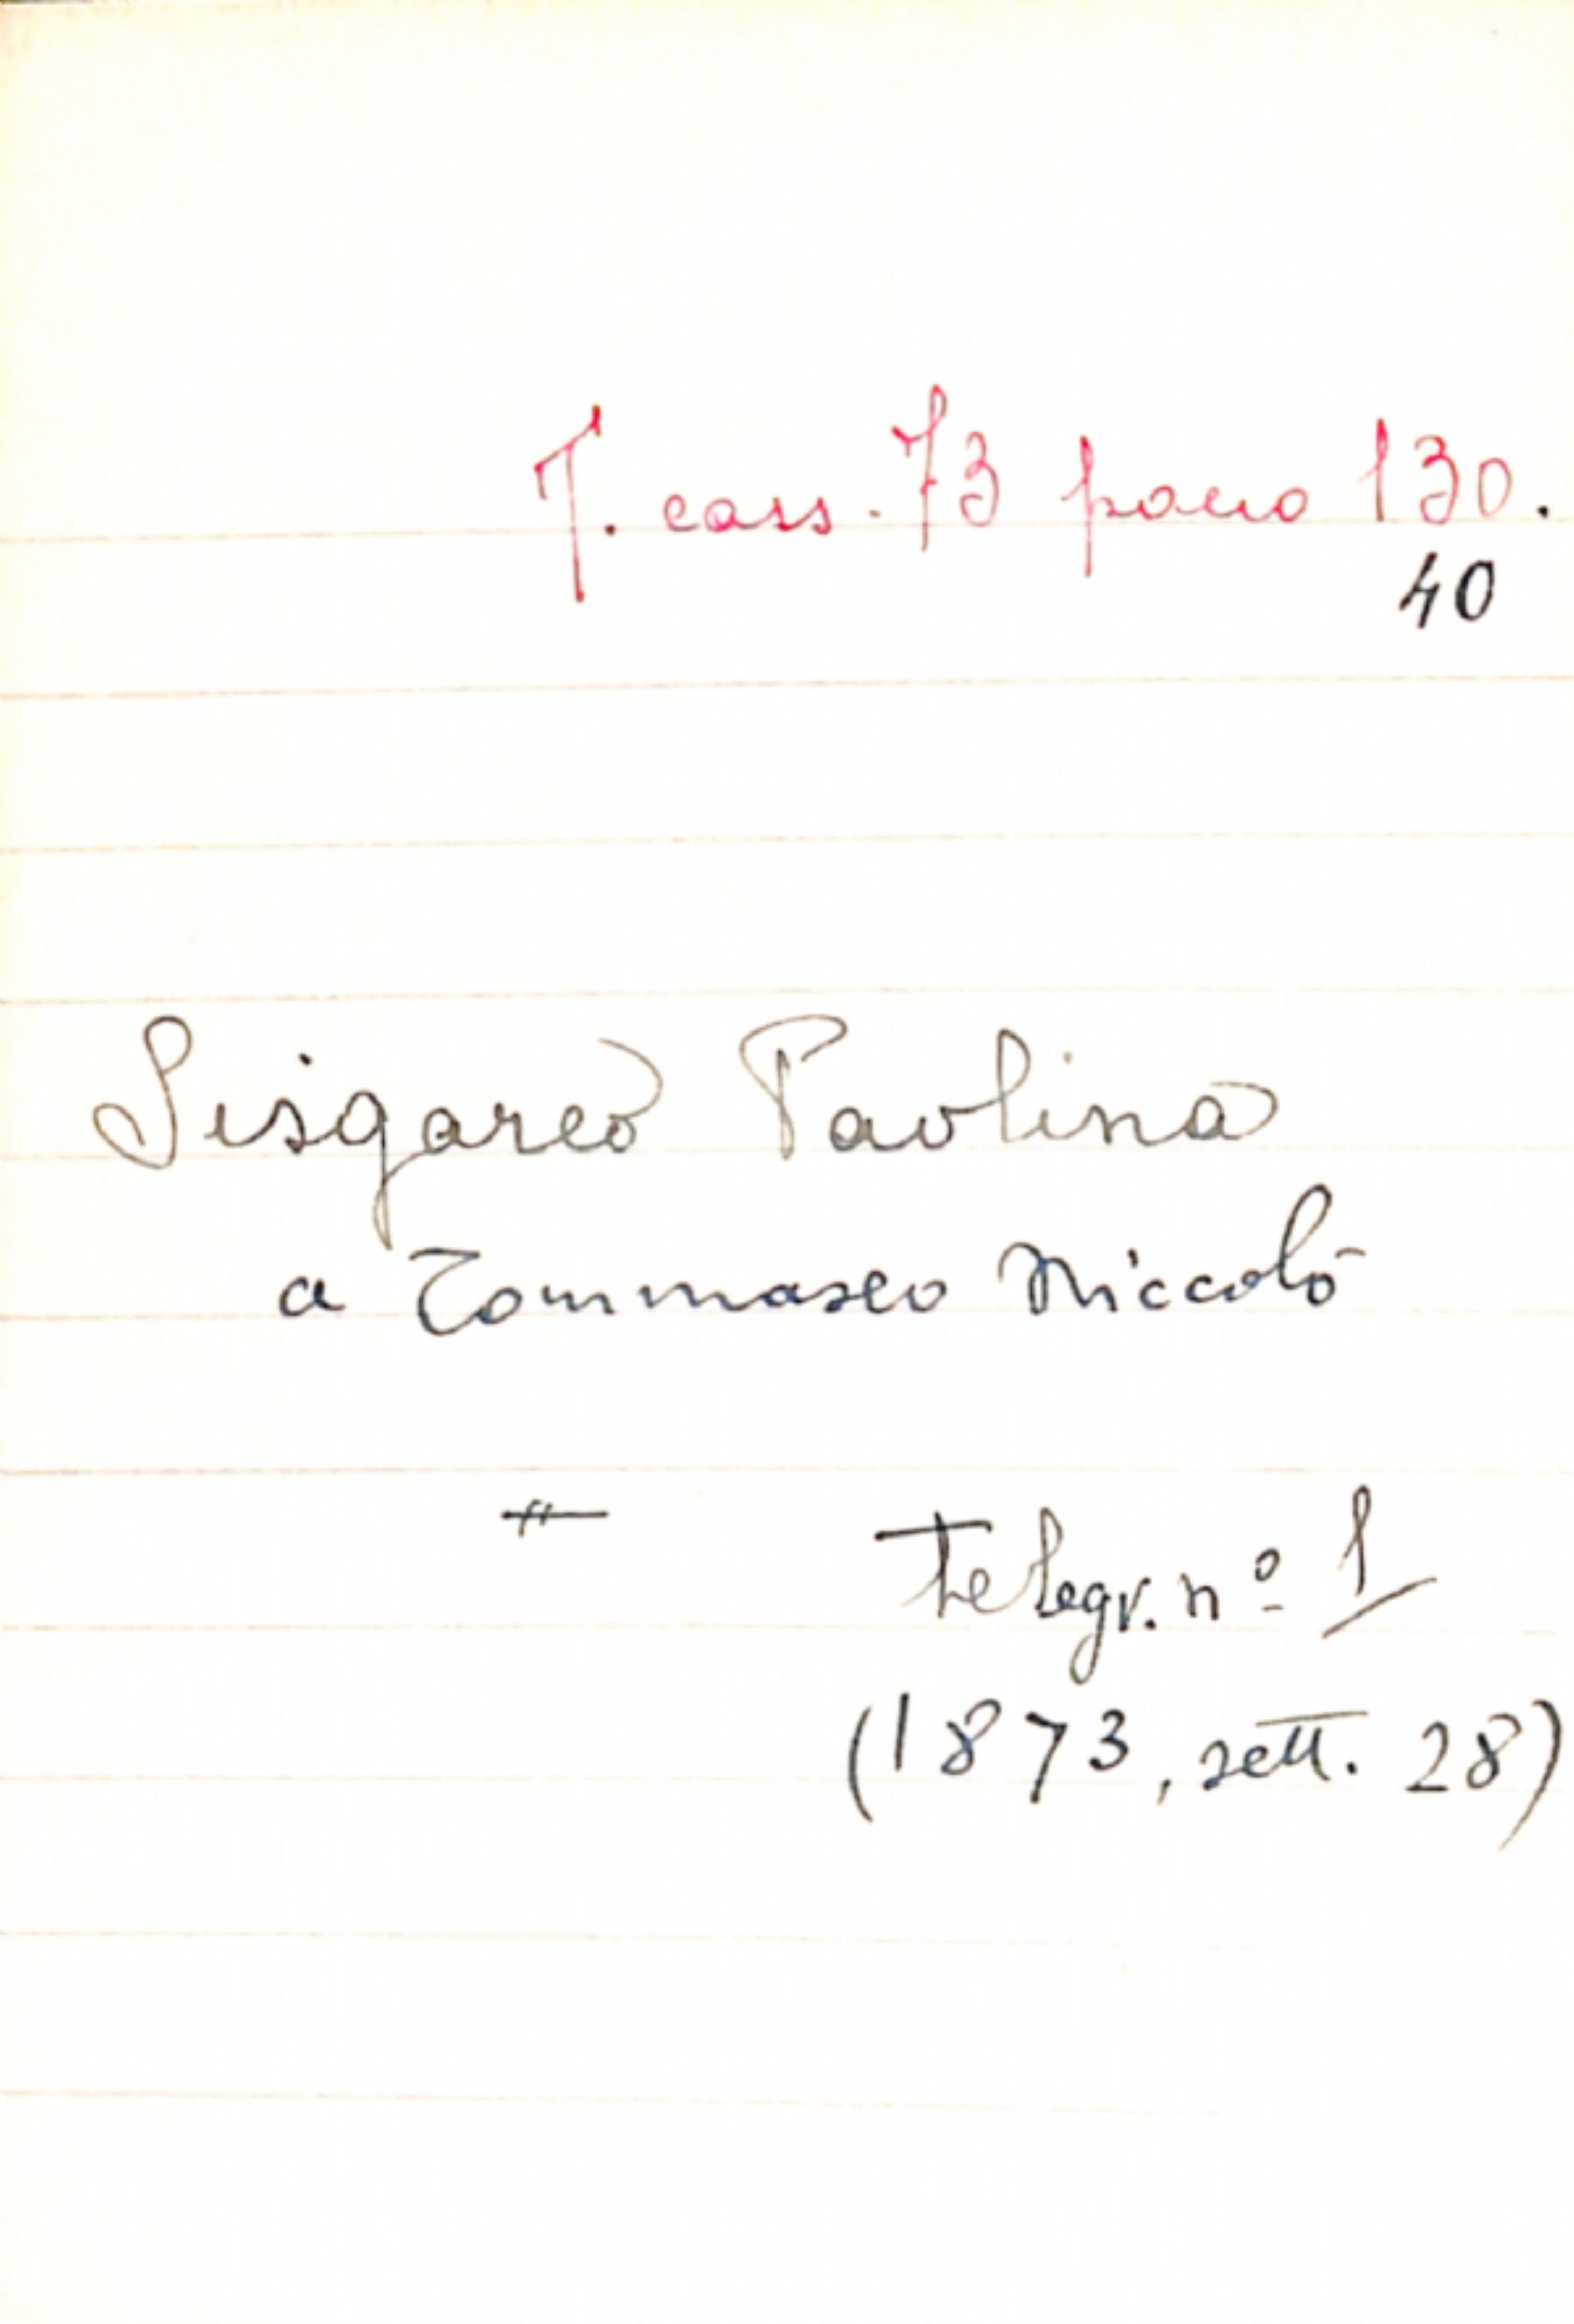 T. cass. 73 pacco 130.
40
Sisgoreo Paolina
a Tommaseo Niccolò
Telegr. nº 1
(1873, sett. 28)